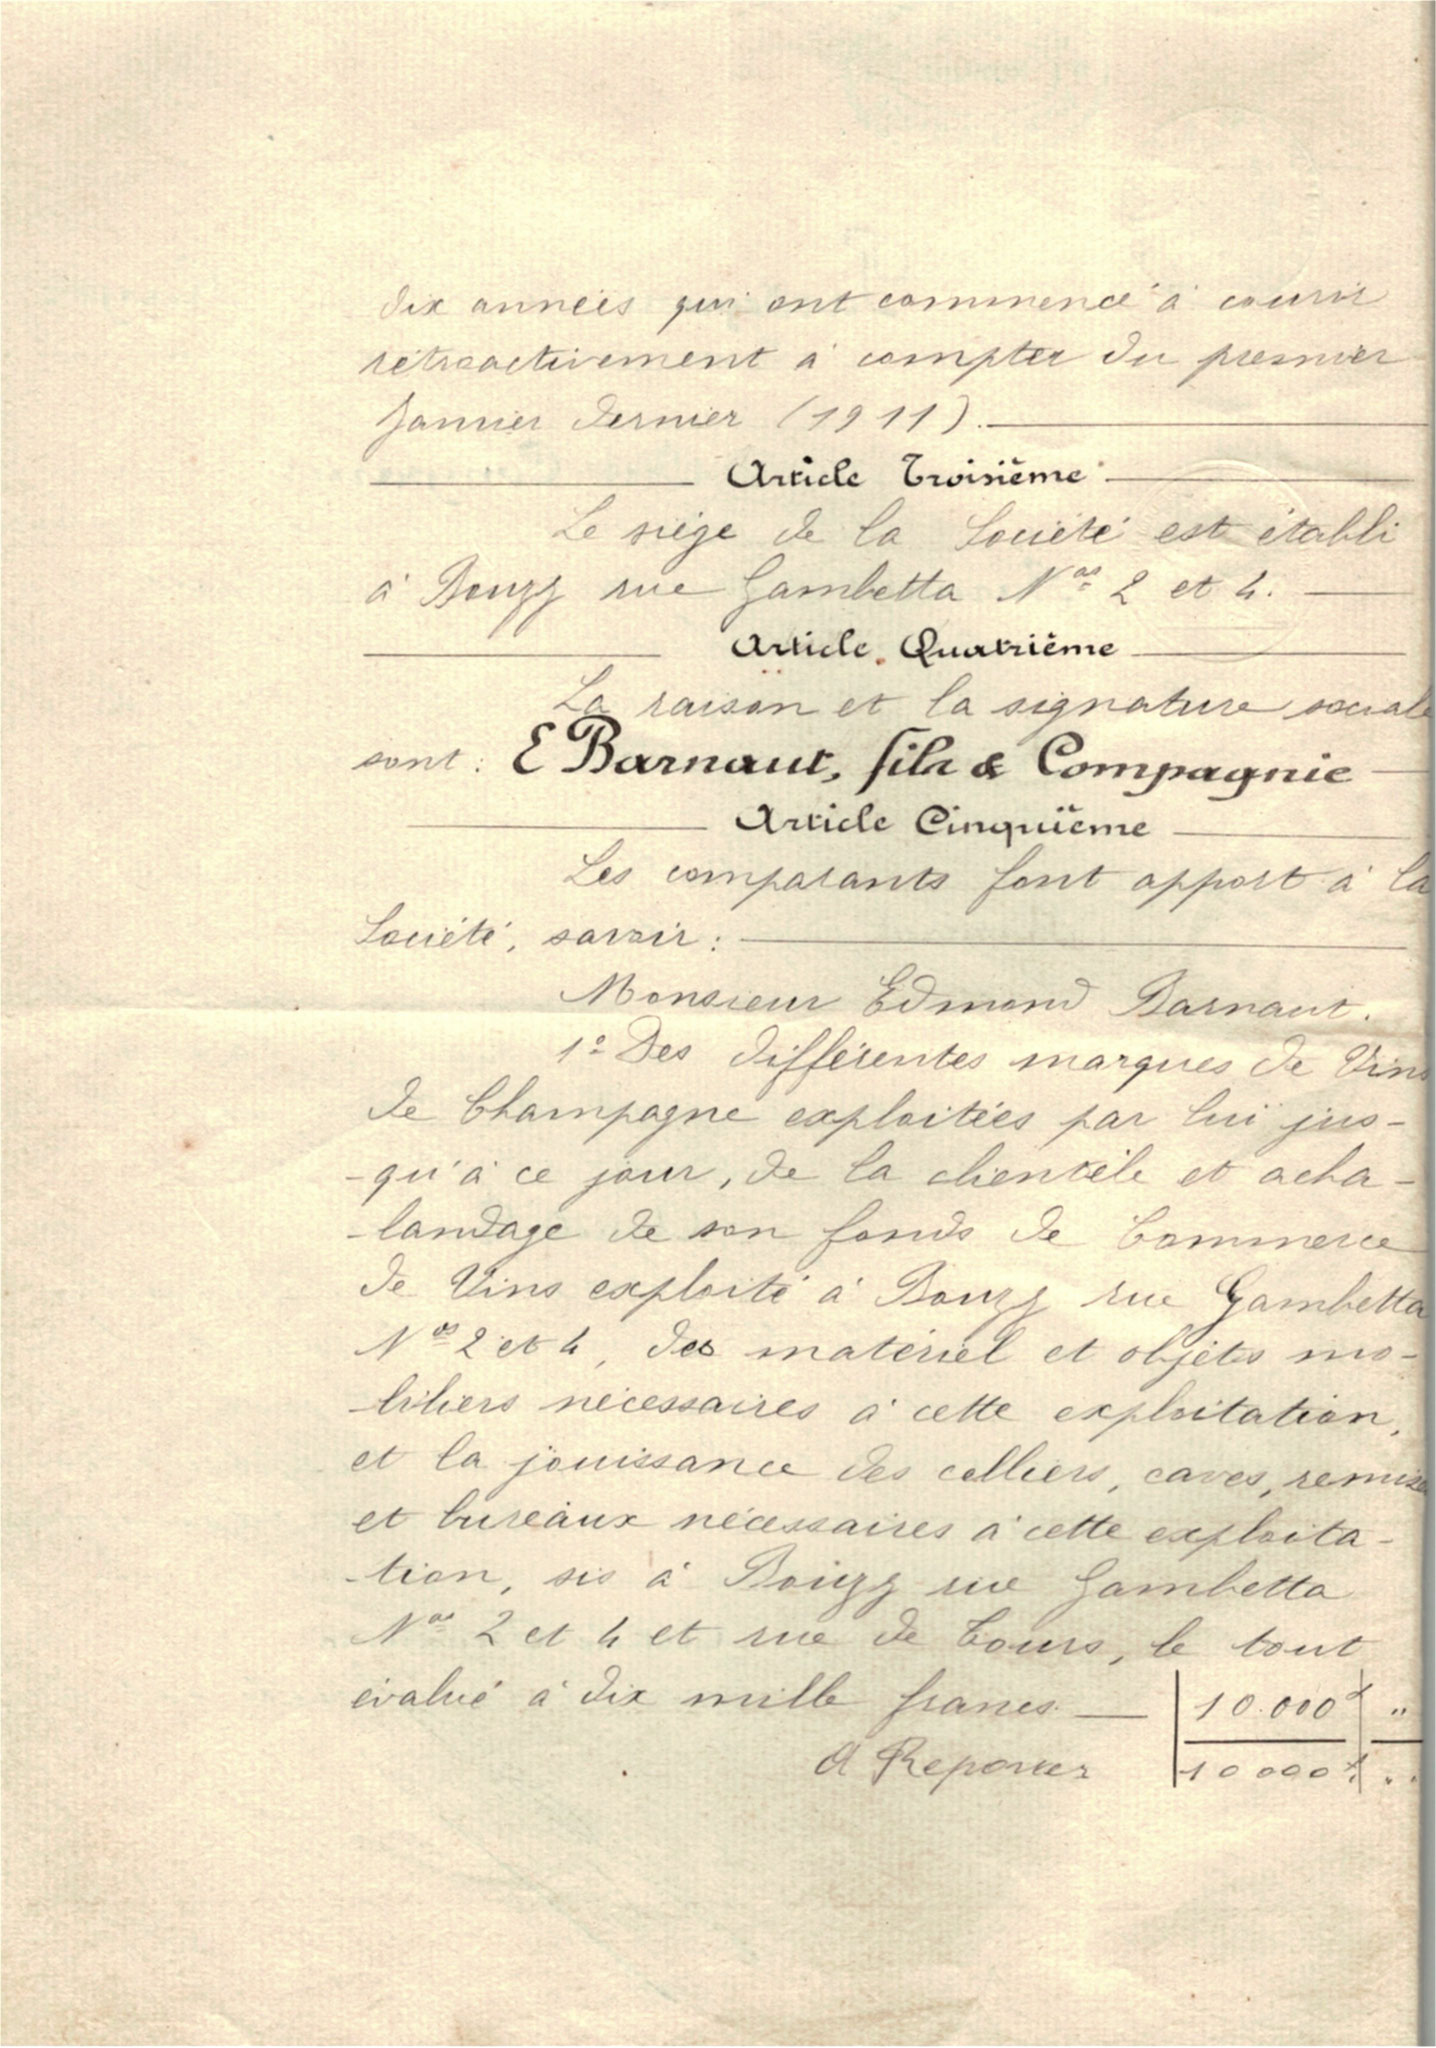 dix années qui ont commencé à courir
rétroactivement à compter du premier
Janvier dernier (1911).
Article Troisième
Le siège de la Société est établi
à Bouzy rue Gambetta Nos 2 et 4.
Article Quatrième
La raison et la signature sociale
sont : E Barnaut, fils & Compagnie
Article Cinquième
Les comparants font apport à la
Société, savoir :
Monsieur Edmond Barnaut.
1º Des différentes marques de Vins
de Champagne exploitées par lui jus-
-qu'à ce jour, de la clientèle et acha-
-landage de son fonds de Commerce
de Vins exploité à Bouzy rue Gambetta
Nos 2 et 4, des matériel et objets mo-
-biliers nécessaires à cette exploitation,
et la jouissance des celliers, caves, remise
et bureaux nécessaires à cette exploita-
-tion, sis à Bouzy rue Gambetta
Nos 2 et 4 et rue de Tours, le tout
évalué à dix mille francs 10.000f "
A Reporter 10000f. "